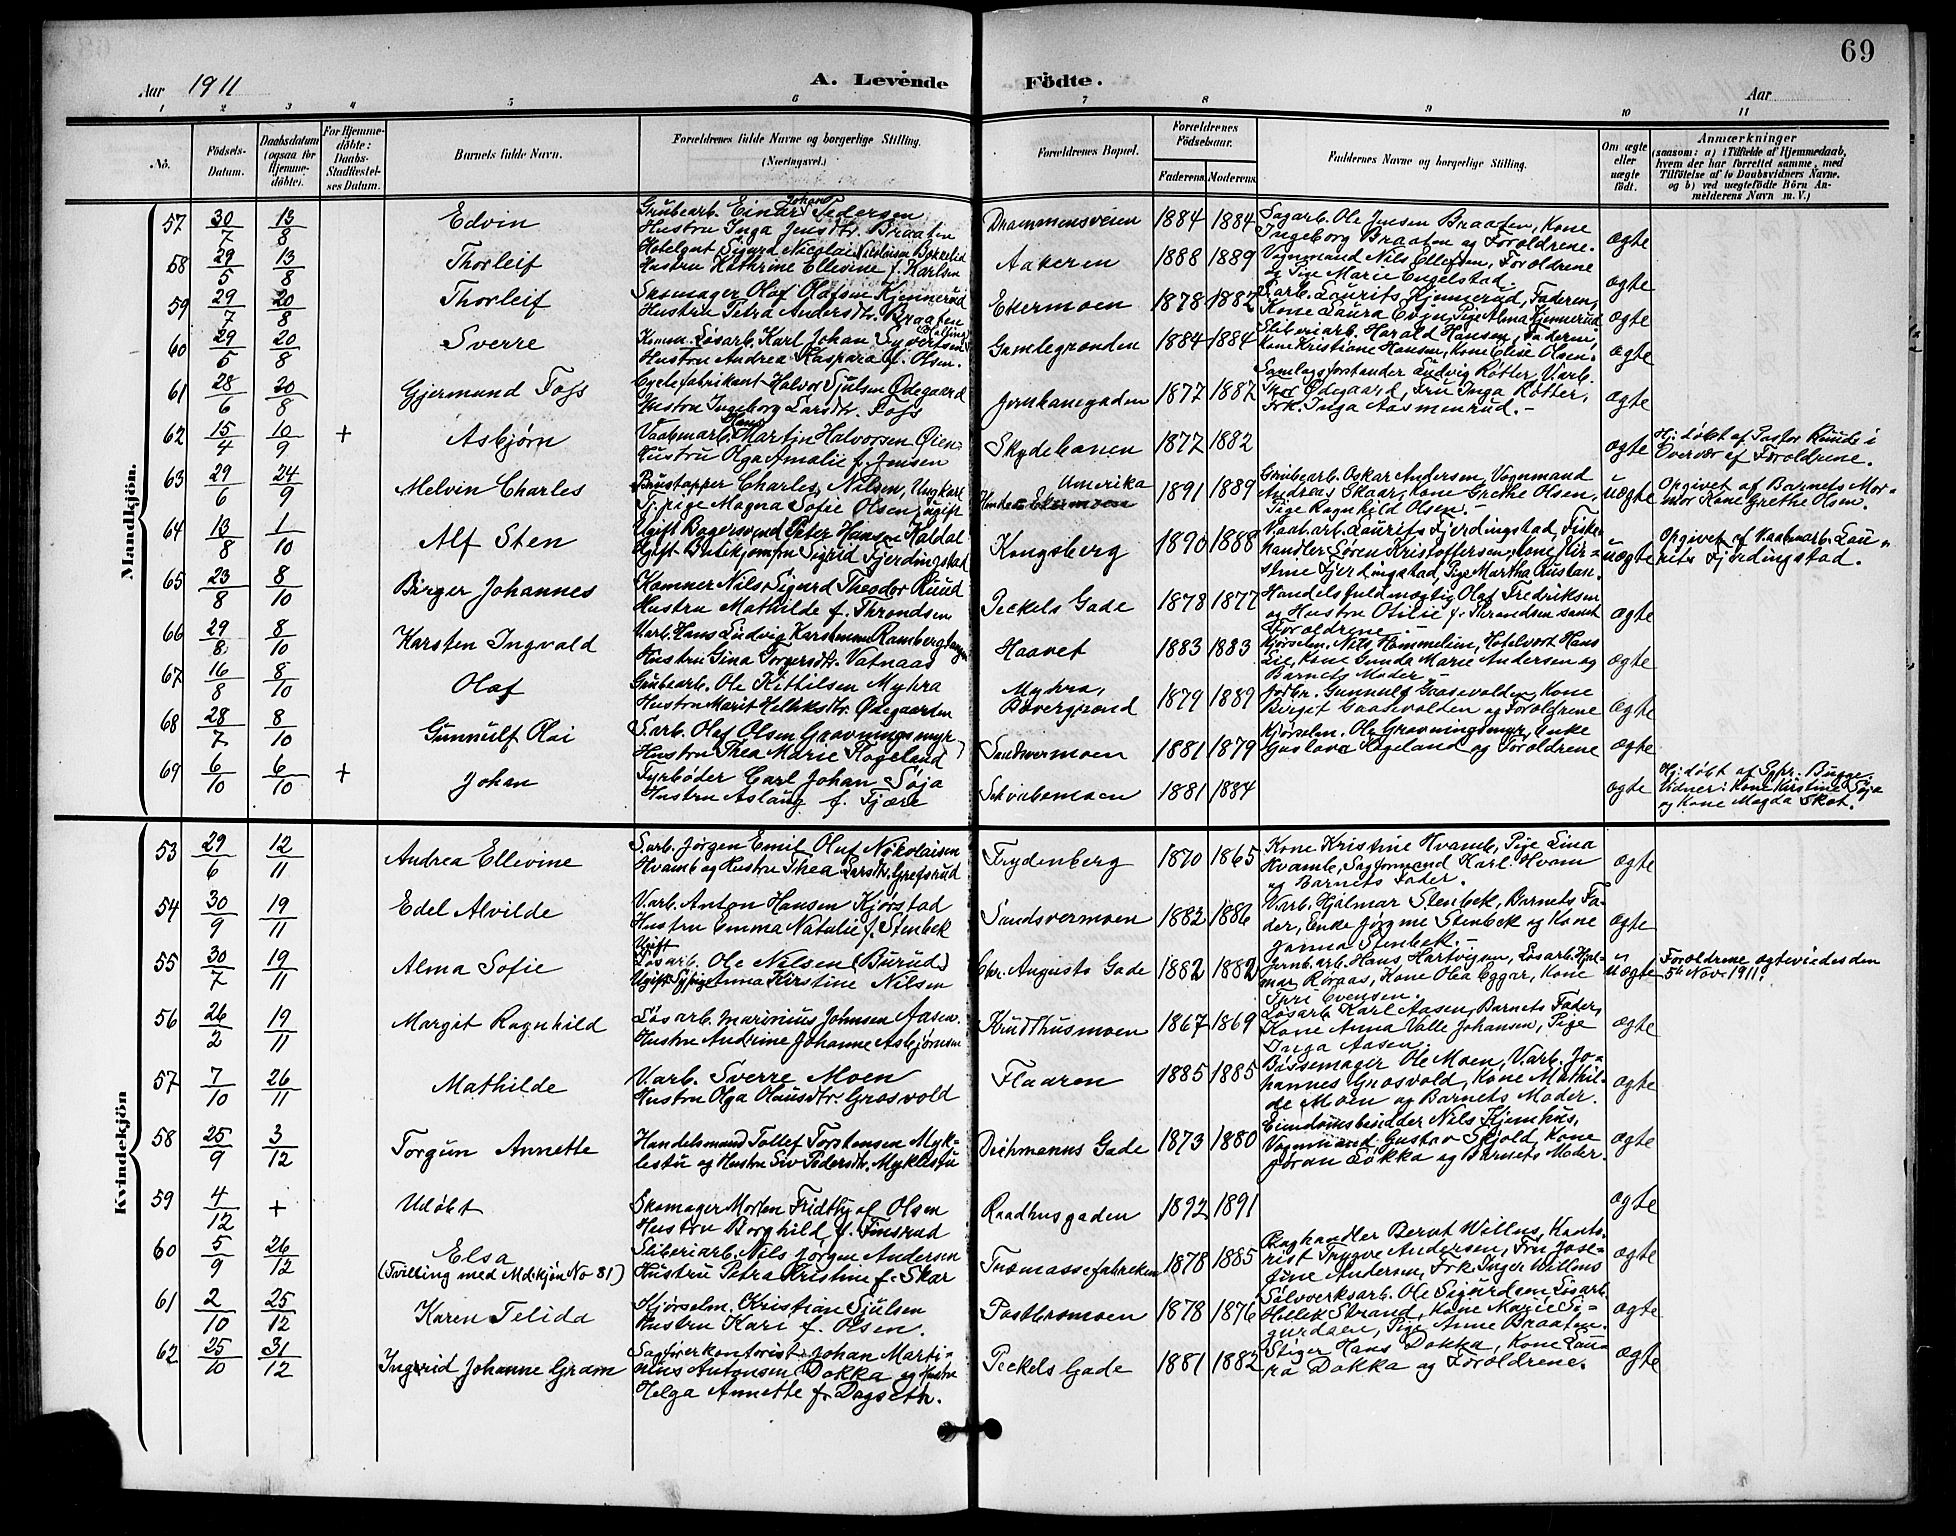 69
Aar 1911
A. Levende Födte.
Aar
1 2 3 4 5 6 7 8 9 10 11
No.
Födsels-Datum.
Daabsdatum (ogsaa for Hjemmedöbte).
For Hjemmedöbte: Daabs-Stadfæstelses Datum.
Barnets fulde Navn.
Forældrenes fulde Navne og borgerlige Stilling. (Næringsvei.)
Forældrenes Bopæl.
Forældrenes Födselsaar.
Faderens. Moderens.
Faddernes Navne og borgerlige Stilling.
Om ægte eller uægte födt.
Anmærkninger
(saasom: a) i Tilfælde af Hjemmedaab, hvem der har forrettet samme, med Tilföielse af to Daabsvidners Navne. og b) ved uægtefödte Börn Anmelderens Navn m. V.)
Mandkjön.
57 30/7 13/8 Edvin
Grubearb. Einar Johan Pedersen
Hustru Inga Jensdtr. Braaten
Drammensveien 1884 1884
Sagarb. Ole Jensen Braaten, Kone
Ingeborg Braaten og Forældrene.
ægte
58 29/5 13/8 Thorleif
Hustru Kathrine Ellevine f. Karlsen
Aakeren 1888 1889
Vognmand Nils Ellefsen, Forældrene
og Pige Marie Engelstad.
ægte
59 29/7 20/8 Thorleif
Skomager Olaf Olafsen Kjennerud
Hustru Petra Andersdtr. Braaten
Ekermoen 1878 1882
S.arb. Laurits Kjennerud, Faderen,
Kone Laura Evju, Pige Alma Kjennerud.
ægte
60 29/5 20/8 Sverre
Løsarb. Karl Johan Syvertsen
Hustru Andrea Kaspara f. Olsen.
Gamlegrænden 1884 1884
Sliberiarb. Harald Hansen, Faderen,
Kone Kristiane Hansen, Kone Elise Olsen.
ægte
61 28/6 20/8 Gjermund Foss
Cyclefabrikant Halvor Sjulsen Ødegaard
Hustru Ingeborg Larsdtr. Foss
Jernbanegaden 1877 1887
Samlagsforstander Ludvig Rotter, V.arb.
Ødegaard, Fru Inga Rotter,
Frk. Inga Aasmunrud.-
ægte
62 15/4 10/9 + Asbjørn
Vaabenarb. Hans Martin Halvorsen Øien
Hustru Olga Amalie f. Jensen
Skydebanen 1877 1882
ægte
Hj: døbt af Pastor Ruud i
Overvær af Forældrene.
63 29/6 24/9 Melvin Charles
Charles Nilsen, Ungkarl
Tj.pige Magna Sofie Olsen, ugift
Amerika
Ekermoen 1891 1889
Grubearb. Oskar Andersen, Vognmand
Andreas Skaar, Kone Grethe Olsen,
Pige Ragnhild Olsen.-
uægte
Opgivet af Barnets Mor-
mor Kone Grethe Olsen.
64 13/8 1/10 Alf Sten
Ugift Bagersvend Peter Hansen Kaldal
Ugift Butikjomfru Sigrid Fjerdingstad
Kongsberg 1890 1888
Vaab.arb. Laurits Fjerdingstad, Fiske-
handler Søren Kristoffersen, Kone Kir-
stine Fjerdingstad, Pige Martha Rustan.
uægte
Opgivet af Vaabnarb. Lau-
rits Fjerdingstad.
65 23/8 8/10 Birger Johannes
Kemner Nils Sigurd Theodor Ruud
Hustru Mathilde f. Throndsen
Peckels Gade 1878 1877
Handelsfuldmægtig Olaf Fredriksen
og Hustru Otilie f. Throndsen samt
Forældrene.-
ægte
66 29/8 8/10 Karsten Ingvald
V.arb. Hans Ludvig Karstensen Ramberg
Hustru Gina Torgersdtr. Vatnaas
Haavet 1883 1883
Kjørselm. Nils Hommeliun, Hotelvert Hans
Lie, Kone Gunda Marie Andersen og
Barnets Moder.-
ægte
67 16/8 8/10 Olaf
Grubearb. Ole Kittilsen Myhra
Hustru Marit Helleksdtr. Ødegaarden
Myhra,
Bævergrænd 1879 1889
Jordbr. Gunnulf Gaasevolden, Kone
Birgit Gaasevolden og Forældrene
ægte
68 28/7 8/10 Gunnulf Olai
S.arb. Olaf Olsen Gravningsmyr
Hustru Thea Marie Hogeland
Sandsvermoen 1881 1879
Kjørselm. Ole Gravningsmyr, Enke
Gustava Hogeland og Forældrene
ægte
69 6/10 6/10 + Johan
Fyrbøder Carl Johan Søja
Hustru Aslaug f. Tjære
Schwabemoen 1881 1884
ægte
Hj: døbt af Spr. Bugge.
Vidner: Kone Kirstine Søja
og Kone Magda Skot.
Kvindekjön
53 29/6 12/11 Andrea Ellevine
S.arb. Jørgen Emil Oluf Nikolaisen
Hvamb og Hustru Thea Larsdtr. Grefsrud
Frydenberg 1870 1865
Kone Kristine Hvamb, Pige Lina
Hvamb, Sagformand Karl Hvam
og Barnets Fader.
ægte
54 30/9 19/11 Edel Alvilde
V.arb. Anton Hansen Kjørstad
Hustru Emma Natalie f. Stenbek
Sandsvermoen 1882 1886
V.arb. Hjalmar Stenbek, Barnets Fa-
der, Enke Jørgine Stenbek og Kone
Janna Stenbek.-
ægte
55 30/7 19/11 Alma Sofie
Ugift
Løsarb. Ole Nilsen (Burud)
Ugift Sypige Anna Kirstine Nilsen
Chr. Augusts Gade 1882 1882
Jernb.arb. Hans Hartvigsen, Løsarb. Hjal-
mar Roraas, Kone Olea Eggar, Kone
Evensen.
uægte
Forældrene ægteviedes den
5te Nov. 1911.
56 26/2 19/11 Margit Ragnhild
Løsarb. Marinius Johnsen Aasen
Hustru Andrine Johanne Asbjørnsen
Krudthusmoen 1867 1869
Løsarb. Karl Aasen, Barnets Fader,
Kone Anna Valle Johansen, Pige
Inga Aasen.
ægte
57 7/10 26/11 Mathilde
V.arb. Sverre Moen
Hustru Olga Olausdtr. Grosvold
Flaaren 1885 1885
Bøssemager Ole Moen, V.arb. Jo-
hannes Grosvold, Kone Mathil-
de Moen og Barnets Moder.
ægte
58 25/9 3/12 Torgun Annette
Handelsmand Tollef Torstensen Myk-
lestu og Hustru Siv Pedersdtr. Myklestu
Dichmanns Gade 1873 1880
Eiendomsbesidder Nils Kjemhus,
Vognmand Gustav Skjold, Kone
Jøran Løkka og Barnets Moder.
ægte
59 4/12 + Udøbt
Skomager Morten Fridthjof Olsen
Hustru Borghild f. Finsrud
Raadhusgaden 1892 1891
ægte
60 5/9 26/12 Elsa
(Tvilling med Mdkjøn No 81)
Sliberiarb. Nils Jørgen Andersen
Hustru Petra Kristine f. Skar
Træmassefabriken 1878 1885
Raghandler Bernt Willus, Konto-
rist Trygve Andersen, Fru Jose-
fine Andersen, Frk. Inger Willus
ægte
61 2/10 25/12 Karen Telida
Kjørselm. Kristian Sjulsen
Hustru Kari f. Olsen.
Pastbromoen 1878 1876
Sølvverksarb. Ole Sigurdsen, Løsarb.
Hellek Strand, Kone Marie Si-
gurdsen, Pige Anne Braaten.
ægte
62 25/10 31/12 Ingerid Johanne Gram
Sagførerkontorist Johan Marti-
nius Antonsen Dokka og Hustru
Helga Annette f. Dagseth.
Peckels Gade 1881 1882
Stiger Hans Dokka, Kone Lau-
ra Dokka og Forældrene.
ægte